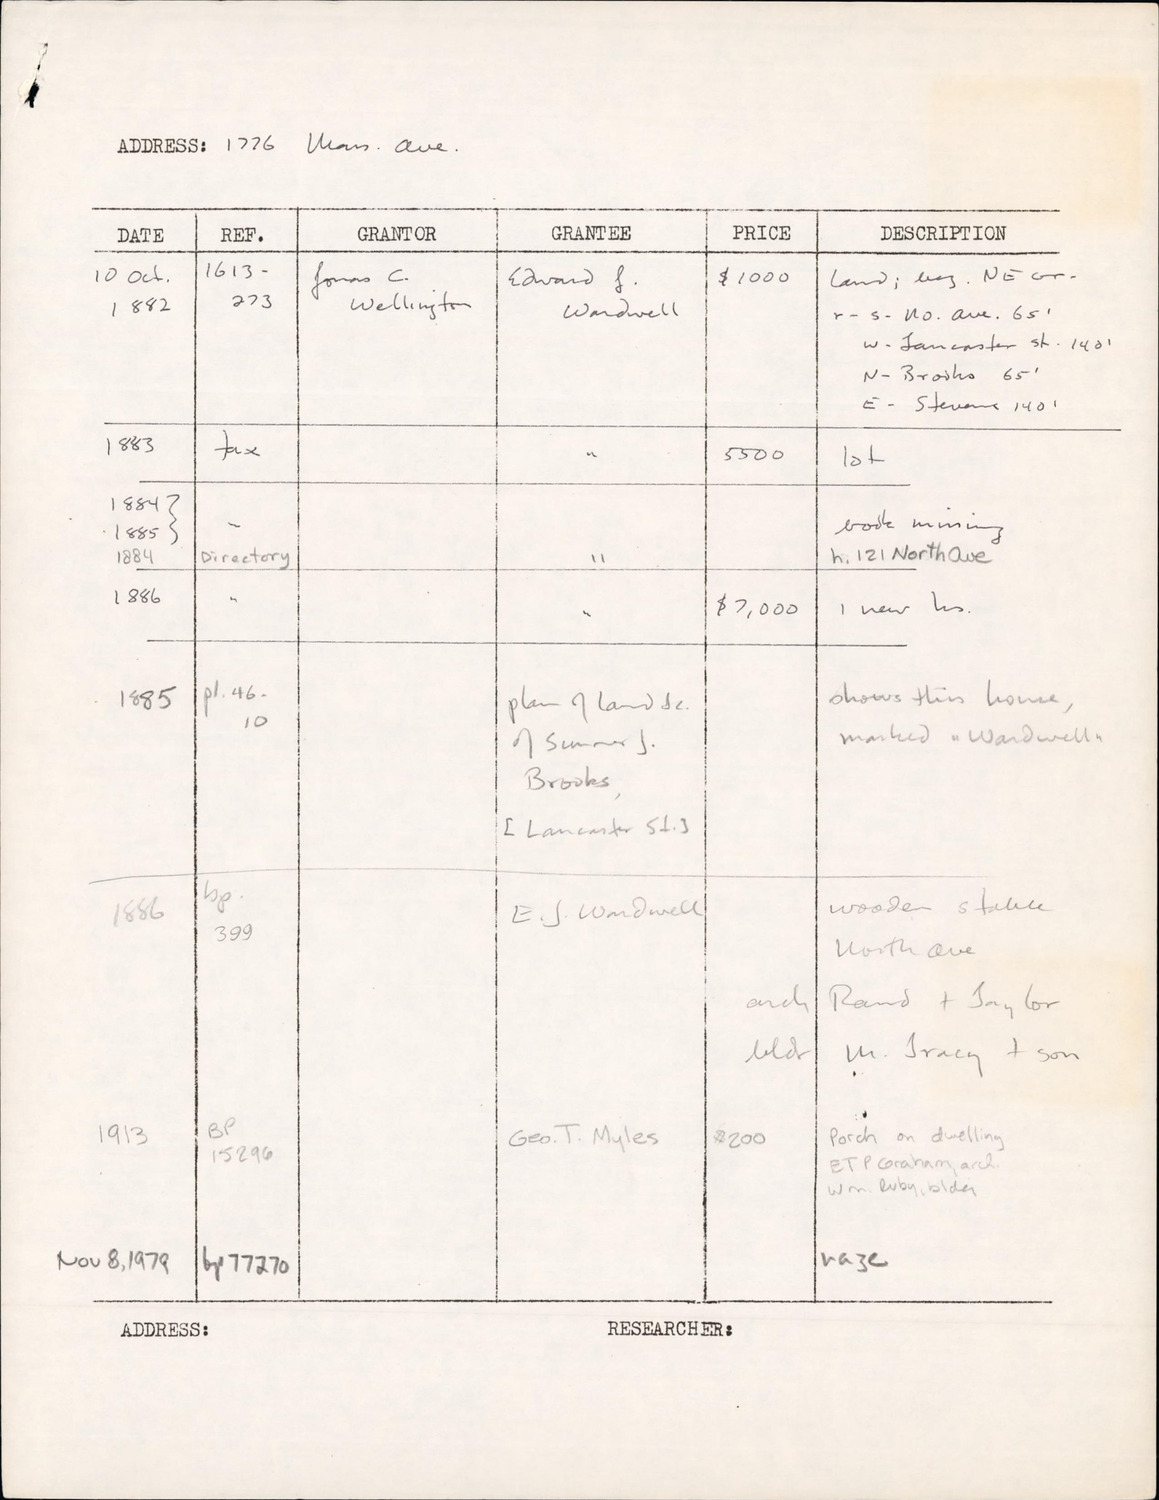 ADDRESS: 1776 Mass. Ave.
DATE REF. GRANTOR GRANTEE PRICE DESCRIPTION
10 Oct. 1613- Jonas C. Edward J. $1000 Land; beg. NE cor-
1882 273 Wellington Wardwell r- S- No. Ave. 65'
W- Lancaster St. 140'
N- Brooks 65'
E- Stevens 140'
1883 tax " 5500 lot
1884}
1885} " book missing
1884 Directory " h. 121 North Ave
1886 " " $7,000 1 new hs.
1885 pl. 46- plan of land &c. shows this house,
10 of Sumner J. marked "Wardwell"
Brooks,
[Lancaster St.]
1886 bp. E. J. Wardwell wooden stable
399 North Ave
arch Rand + Taylor
bldr M. Tracy + son
1913 BP Geo. T. Myles $200 Porch on dwelling
15296 ETP Graham, arch.
Wm. Ruby, blder
Nov 8, 1979 bp 77270 raze
ADDRESS: RESEARCHER: